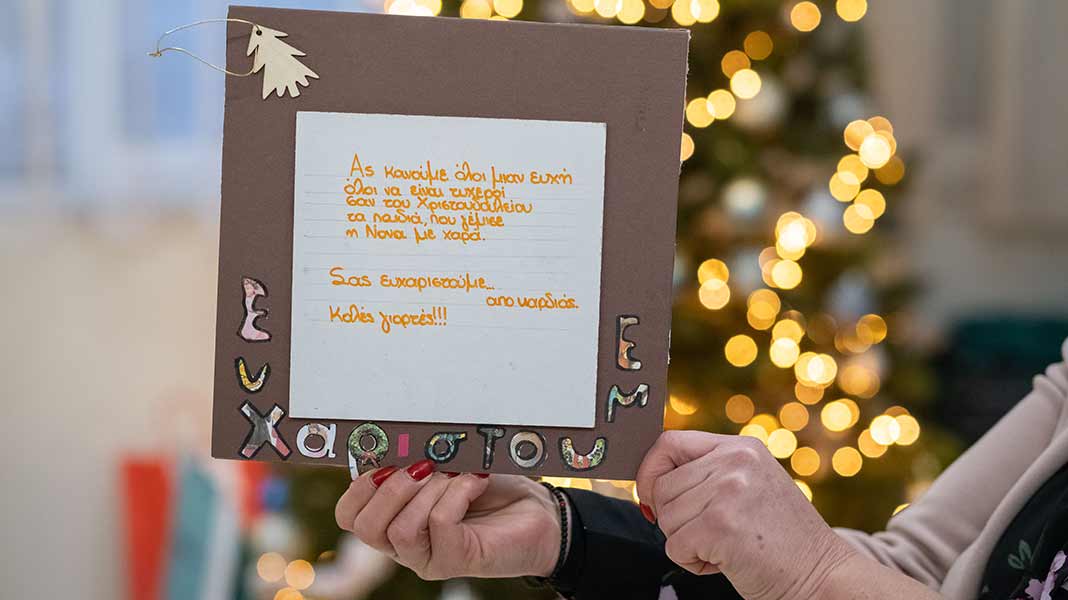 Ας κανουμε όλοι μιαν ευχή
όλοι να είναι τυχεροί
σαν του Χριστουδουλείου
τα παιδιά, που γέμισε
η Νονα με χαρά.
Σας ευχαριστούμε...
απο καρδιάς.
Καλές γιορτές!!!
Ευχαριστουμ Ε